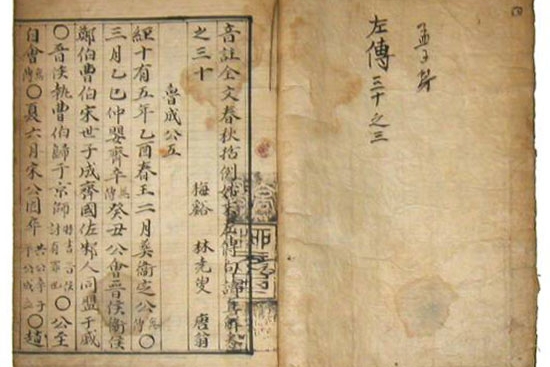 孟子
左傳 三十之三
音註全文春秋括例始末左傳句讀直解卷
之三十 梅谿 林堯叟 唐翁
魯成公五
經十有五年乙酉春王二月葬衛定公無傳〇
三月乙巳仲嬰齊卒無傳癸丑公會晉侯衛侯
鄭伯曹伯宋世子成齊國佐邾人同盟于戚
〇晉侯執曹伯歸于京師討有罪也〇公至
自會無傳〇夏六月宋公固卒共公卒子平公成立〇